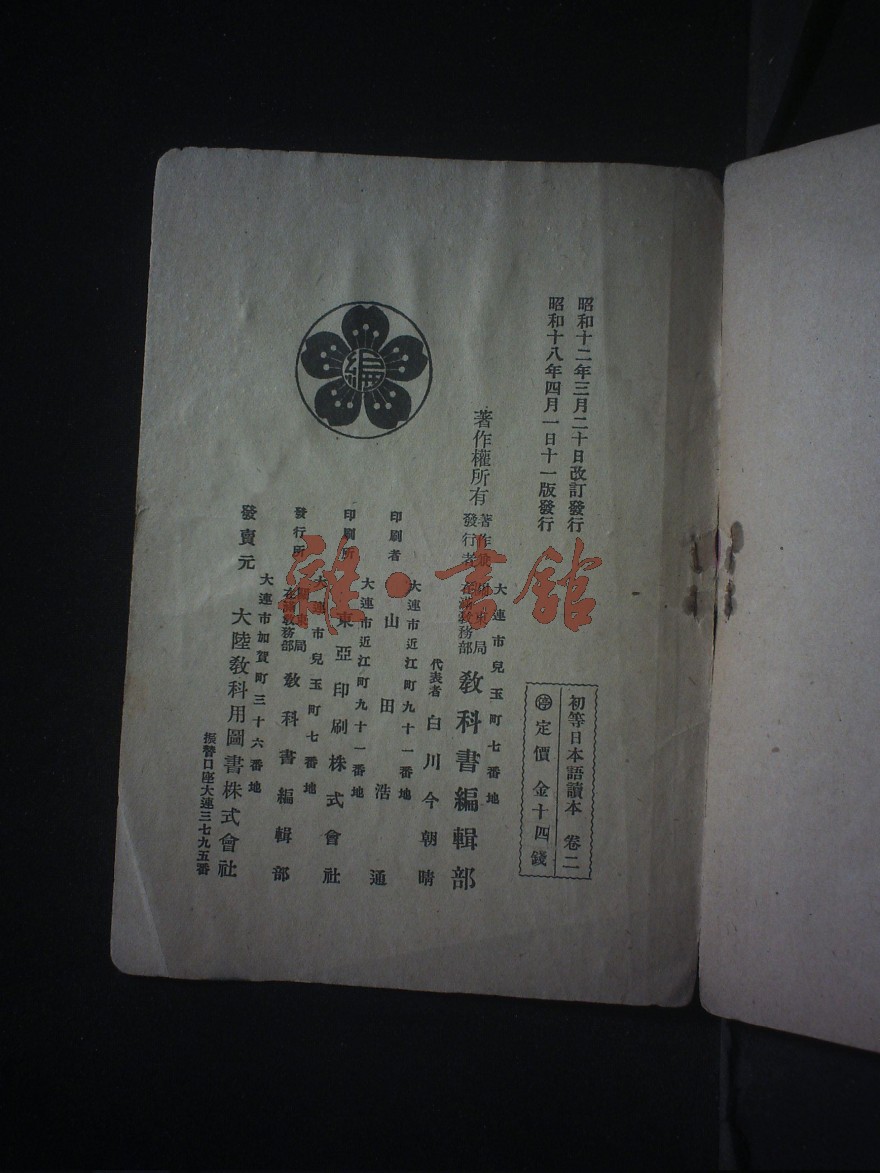 昭和十二年三月二十日改訂發行
昭和十八年四月一日十一版發行
初等日本語讀本 卷二
停 定價 金十四錢
著作權所有
大連市兒玉町七番地
發行者
在滿敎務部
敎科書編輯部
代表者 白川今朝晴
大連市近江町九十一番地
印刷者 山田浩通
大連市近江町九十一番地
印刷所 東亞印刷株式會社
大連市兒玉町七番地
發行所
在滿敎務部
敎科書編輯部
大連市加賀町三十六番地
發賣元 大陸敎科用圖書株式會社
振替口座大連三七九五番
編
雜·書館